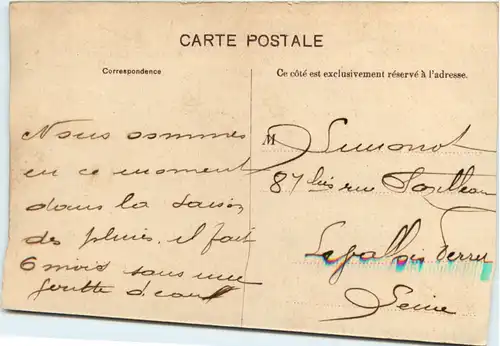 CARTE POSTALE
Correspondence
Ce côté est exclusivement réservé à l'adresse.
Nous sommes
en ce moment
dans la saison
des pluies. il fait
6 mois sans une
goutte d'eau
M Simonot
87 bis rue
Levallois Perret
Seine